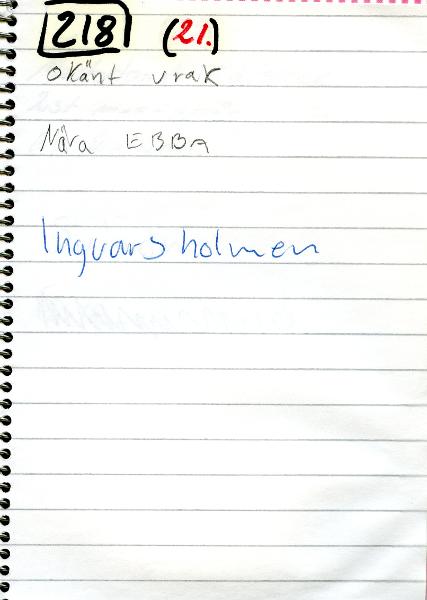 218 (21.)
okänt vrak
Nära EBBA
Ingvarsholmen